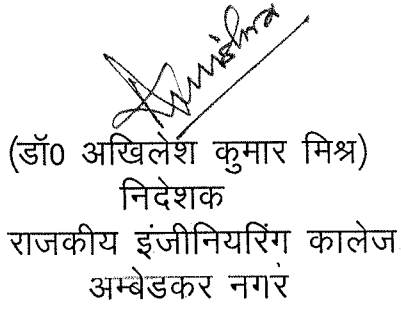 (डॉ0 अखिलेश कुमार मिश्र)
निदेशक
राजकीय इंजीनियरिंग कालेज
अम्बेडकर नगर